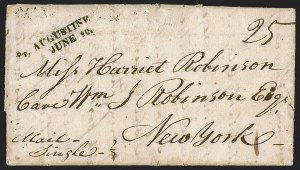 St. AUGUSTINE
JUNE 16.
25
Miss Harriet Robinson
Care Wm J Robinson Esqr
New York
Mail
Single